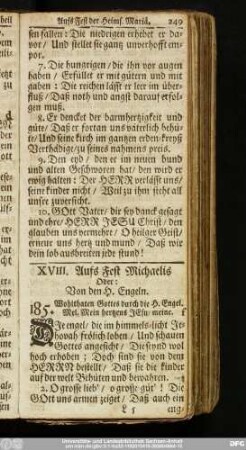 Auffs Fest der Heims. Mariä. 249
sen fallen: Die niedrigen erhebet er da-
vor / Und stellet sie gantz unverhofft em-
por.
7. Die hungrigen / die ihn vor augen
haben / Erfüllet er mit gütern und mit
gaben: Die reichen läßt er leer im über-
fluß / Daß noth und angst darauf erfol-
gen muß.
8. Er dencket der barmhertzigkeit und
güte / Daß er fortan uns väterlich behü-
te / Und seine kirch im gantzen erden-kreyß
Vertheidige / zu seines nahmens preis.
9. Den eyd / den er im neuen bund
und alten Geschworen hat / den wird er
ewig halten: Der HERR verläßt uns /
seine kinder nicht / Weil zu ihm steht all
unsre zuversicht.
10. GOtt Vater / dir sey danck gesagt
und ehre / HERR JESU Christ / den
glauben uns vermehre / O heilger Geist /
erneue uns hertz und mund / Daß wir
dein lob ausbreiten jede stund!
XVIII. Auffs Fest Michaelis
Oder:
Von den H. Engeln.
185. Wohlthaten Gottes durch die H. Engel.
Mel. Mein hertzens JEsu, meine. f
Die engel / die im himmels-licht Je-
hovah frölich loben / Und schauen
Gottes angesicht / Die seynd wol
hoch erhoben; Doch sind sie von dem
HERRN bestellt / Daß sie die kinder
auf der welt Behüten und bewahren.
2. O grosse lieb / o grosse güt! Die
GOtt uns armen zeiget / Daß auch ein
L 5 eng-
Universitäts- und Landesbibliothek Sachsen-Anhalt